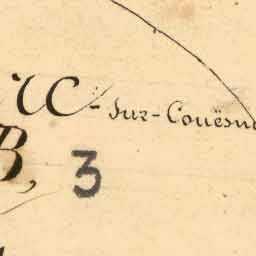 - Sur - Couësn
B,
3